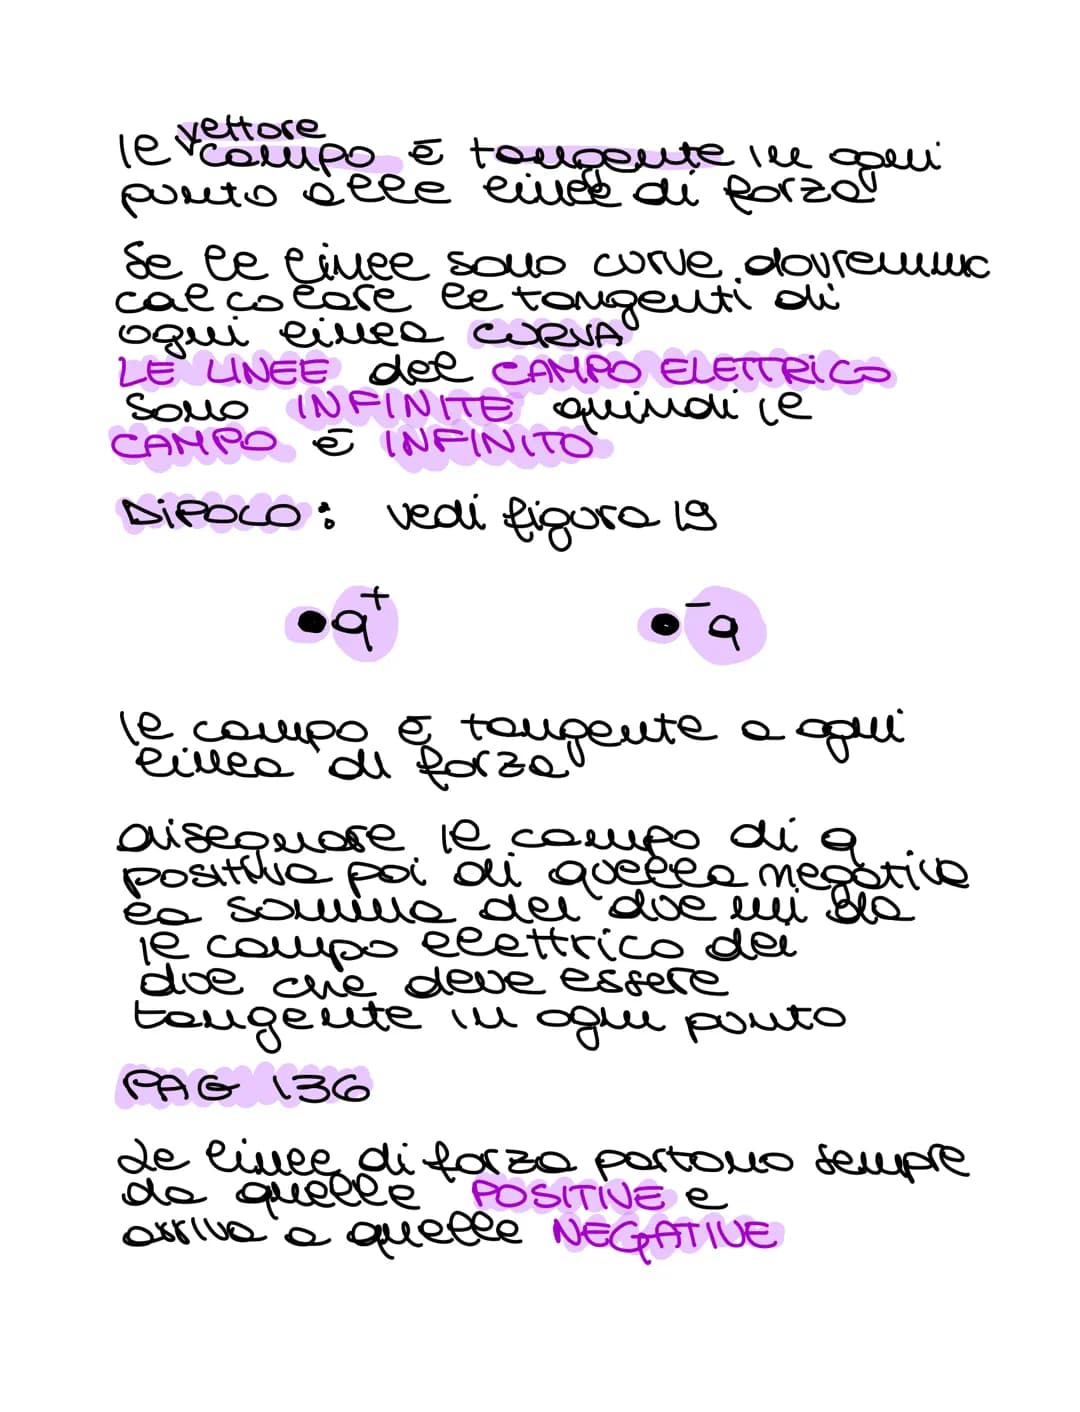 Il vettore
campo è tangente in ogni
punto alle linee di forza
Se le linee sono curve dovremmo
calcolare le tangenti di
ogni linea CURVA
LE LINEE del CAMPO ELETTRICO
sono INFINITE quindi il
CAMPO è INFINITO
DIPOLO: vedi figura 19
q+ -q
Il campo è tangente a ogni
linea di forza
disegnare il campo di q
positiva poi di quella negativa
la somma dei due mi dà
il campo elettrico dei
due che deve essere
tangente in ogni punto
PAG 136
Le linee di forza partono sempre
da quelle POSITIVE e
arriva a quelle NEGATIVE